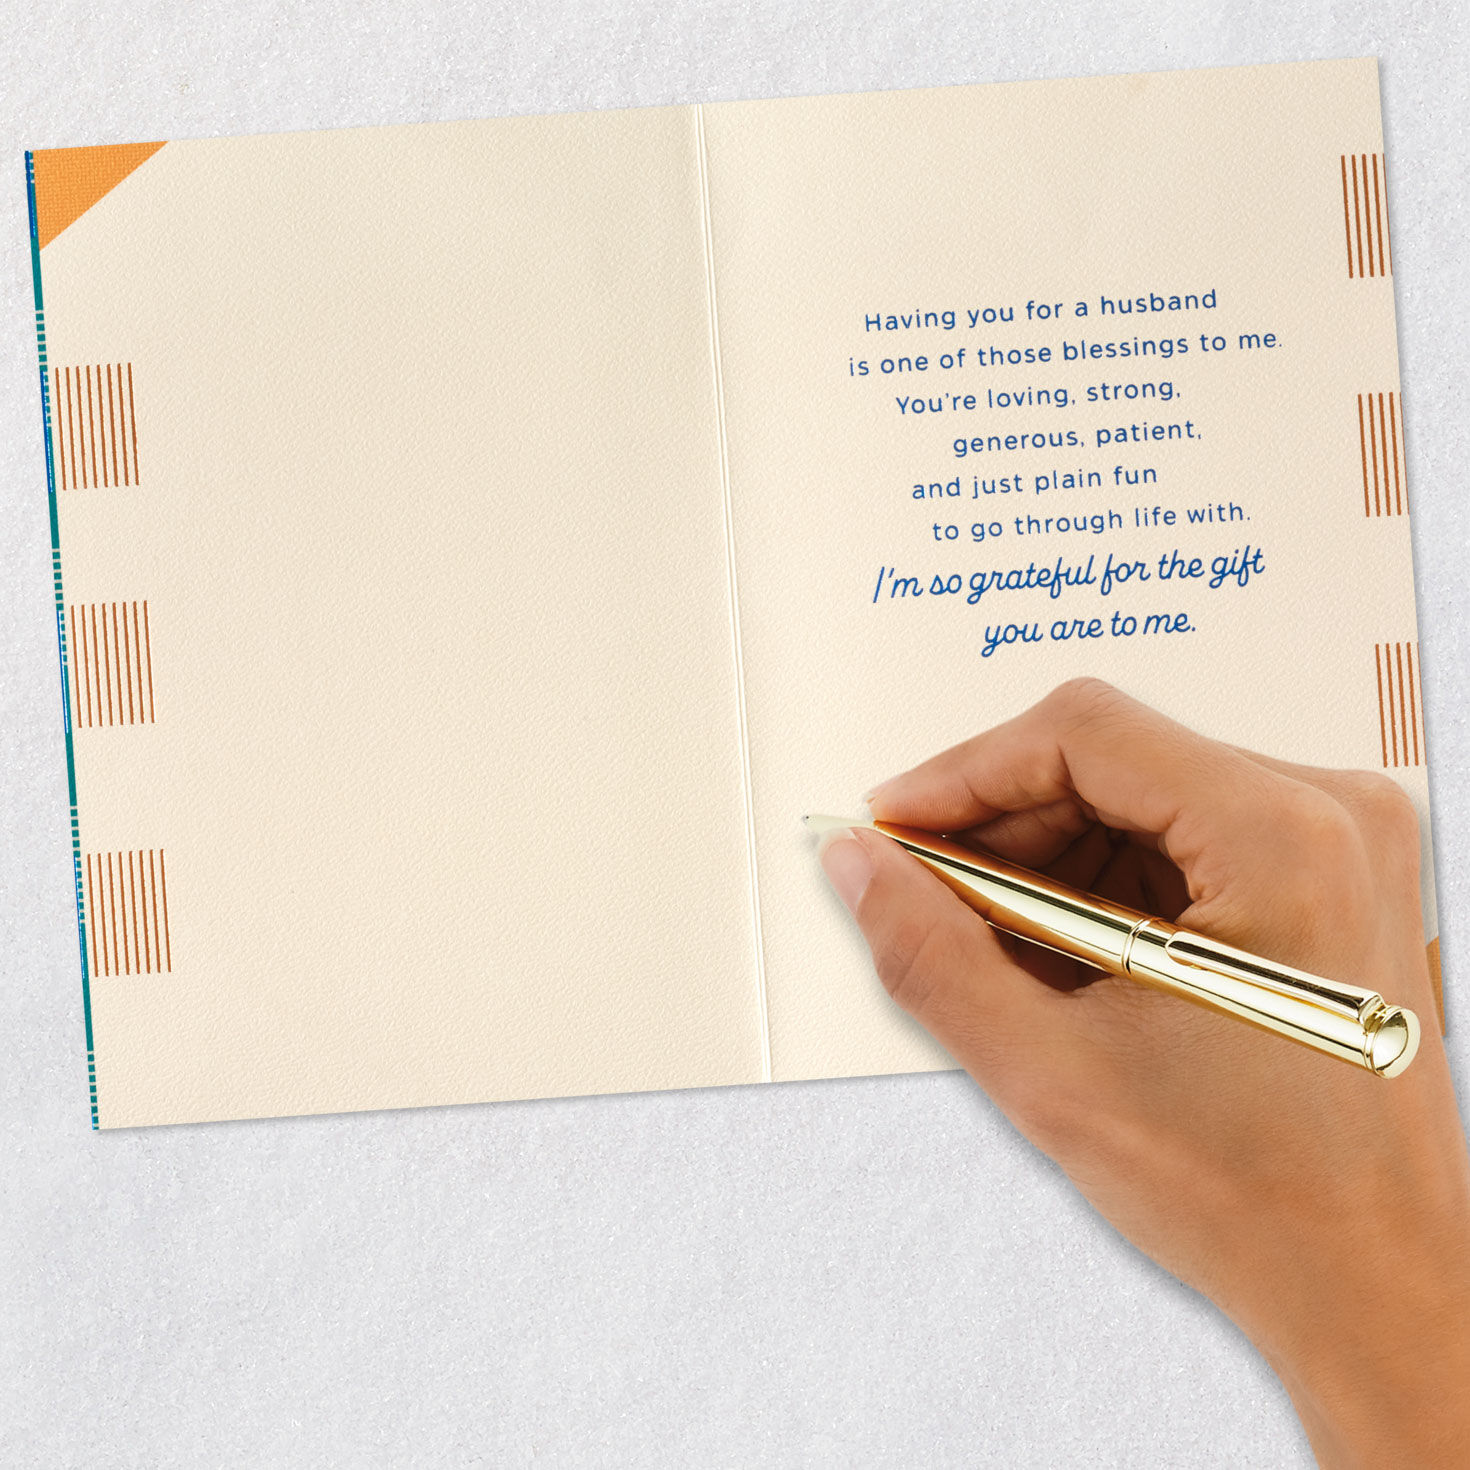 Having you for a husband
is one of those blessings to me.
You're loving, strong,
generous, patient,
and just plain fun
to go through life with.
I'm so grateful for the gift
you are to me.